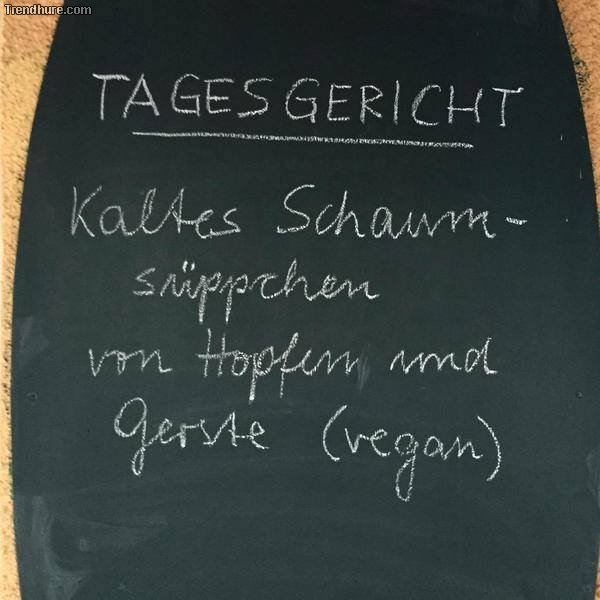 Trendhure.com
TAGESGERICHT
Kaltes Schaum-
süppchen
von Hopfen und
Gerste (vegan)